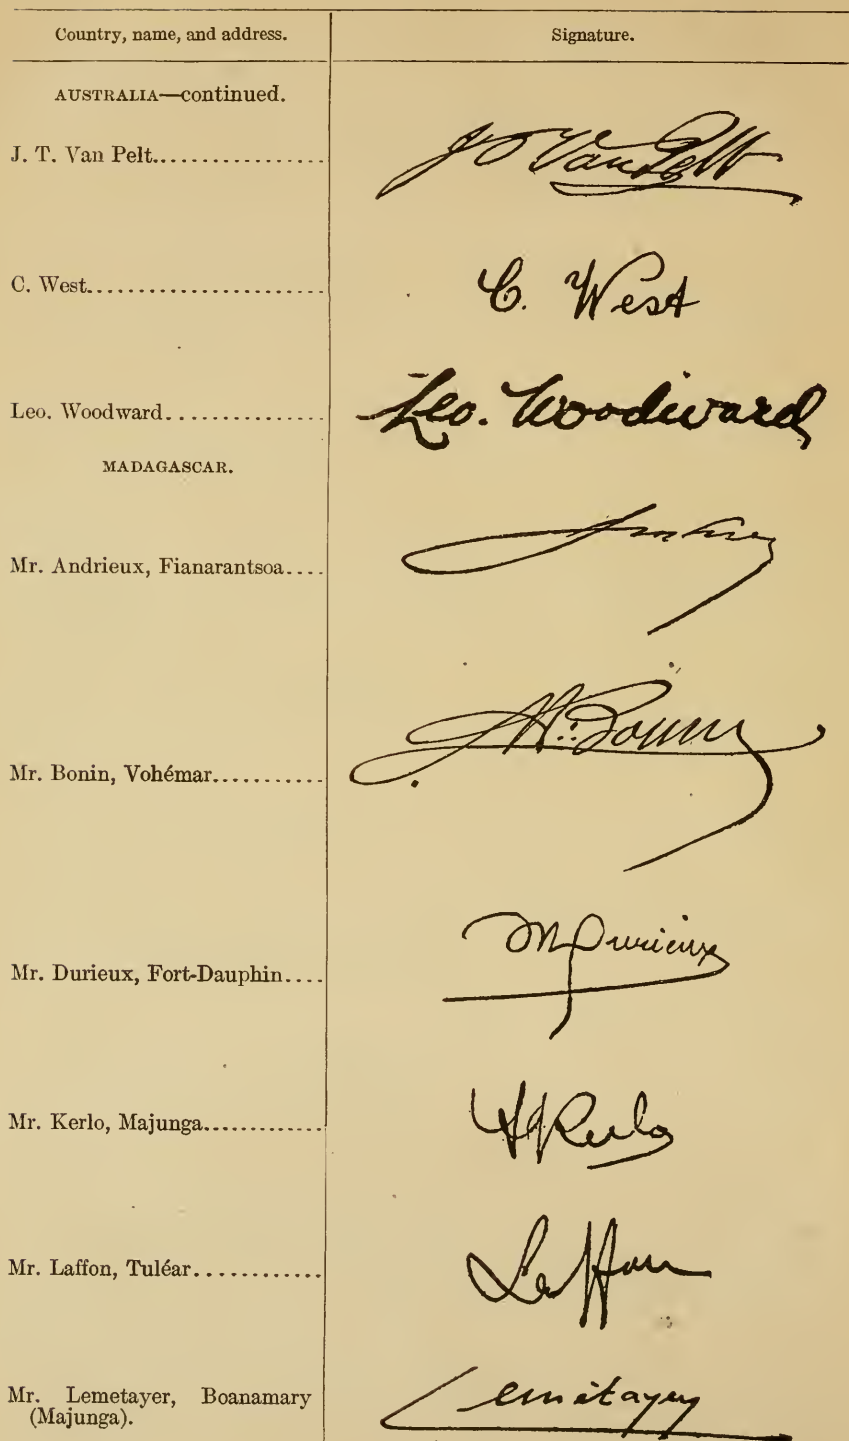 Country, name, and address. Signature.
AUSTRALIA—continued.
J. T. Van Pelt............... J T Van Pelt
C. West...................... C. West
Leo. Woodward.............. Leo. Woodward
MADAGASCAR.
Mr. Andrieux, Fianarantsoa....
Mr. Bonin, Vohémar.......... Bonin
Mr. Durieux, Fort-Dauphin.... M Durieux
Mr. Kerlo, Majunga............ Kerlo
Mr. Laffon, Tuléar............ Laffon
Mr. Lemetayer, Boanamary Lemetayer
(Majunga).